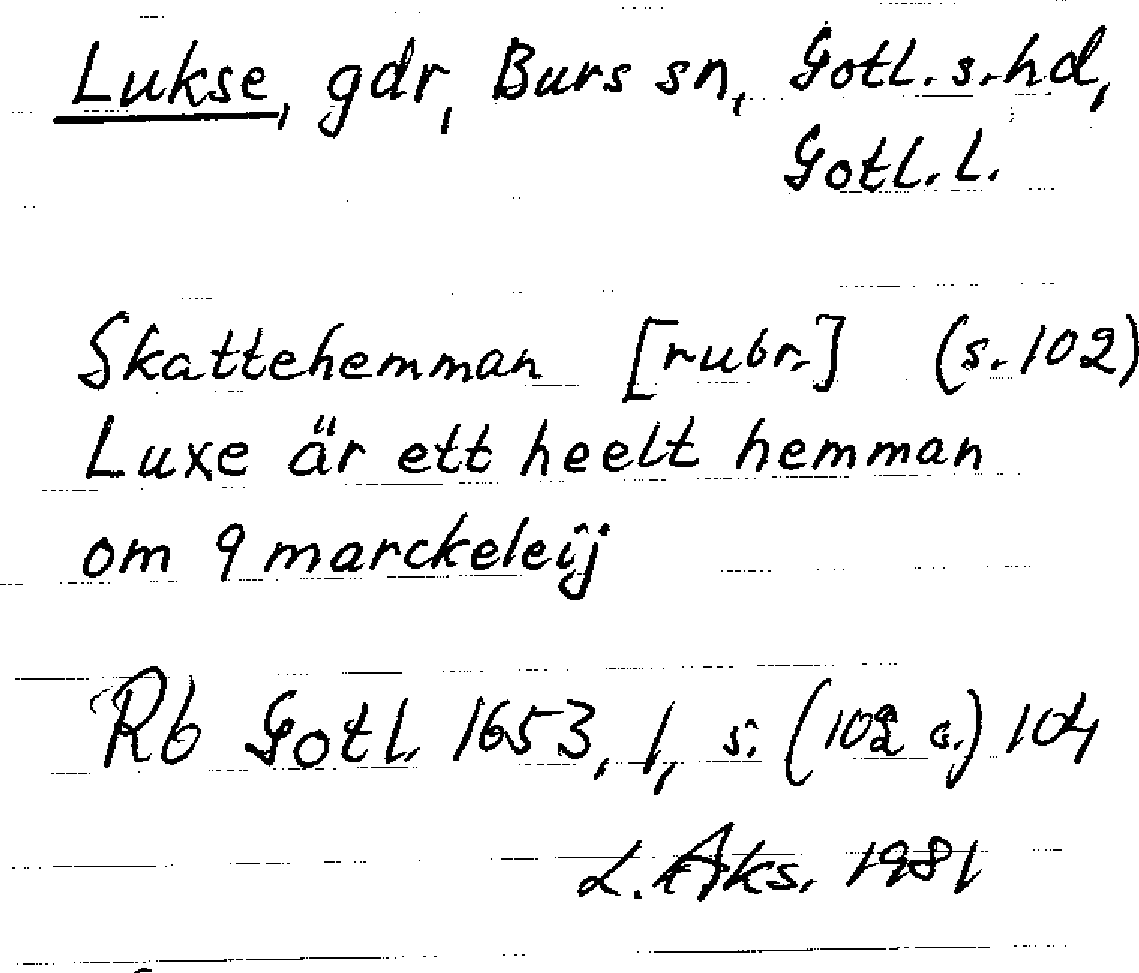 Lukse, gdr, Burs sn, Gotl. s. hd,
Gotl. l.
Skattehemman [rubr.] (s. 102)
Luxe är ett heelt hemman
om 9 marckeleij
Rb Gotl. 1653, 1, s. (102 o.) 104
L. Aks. 1981